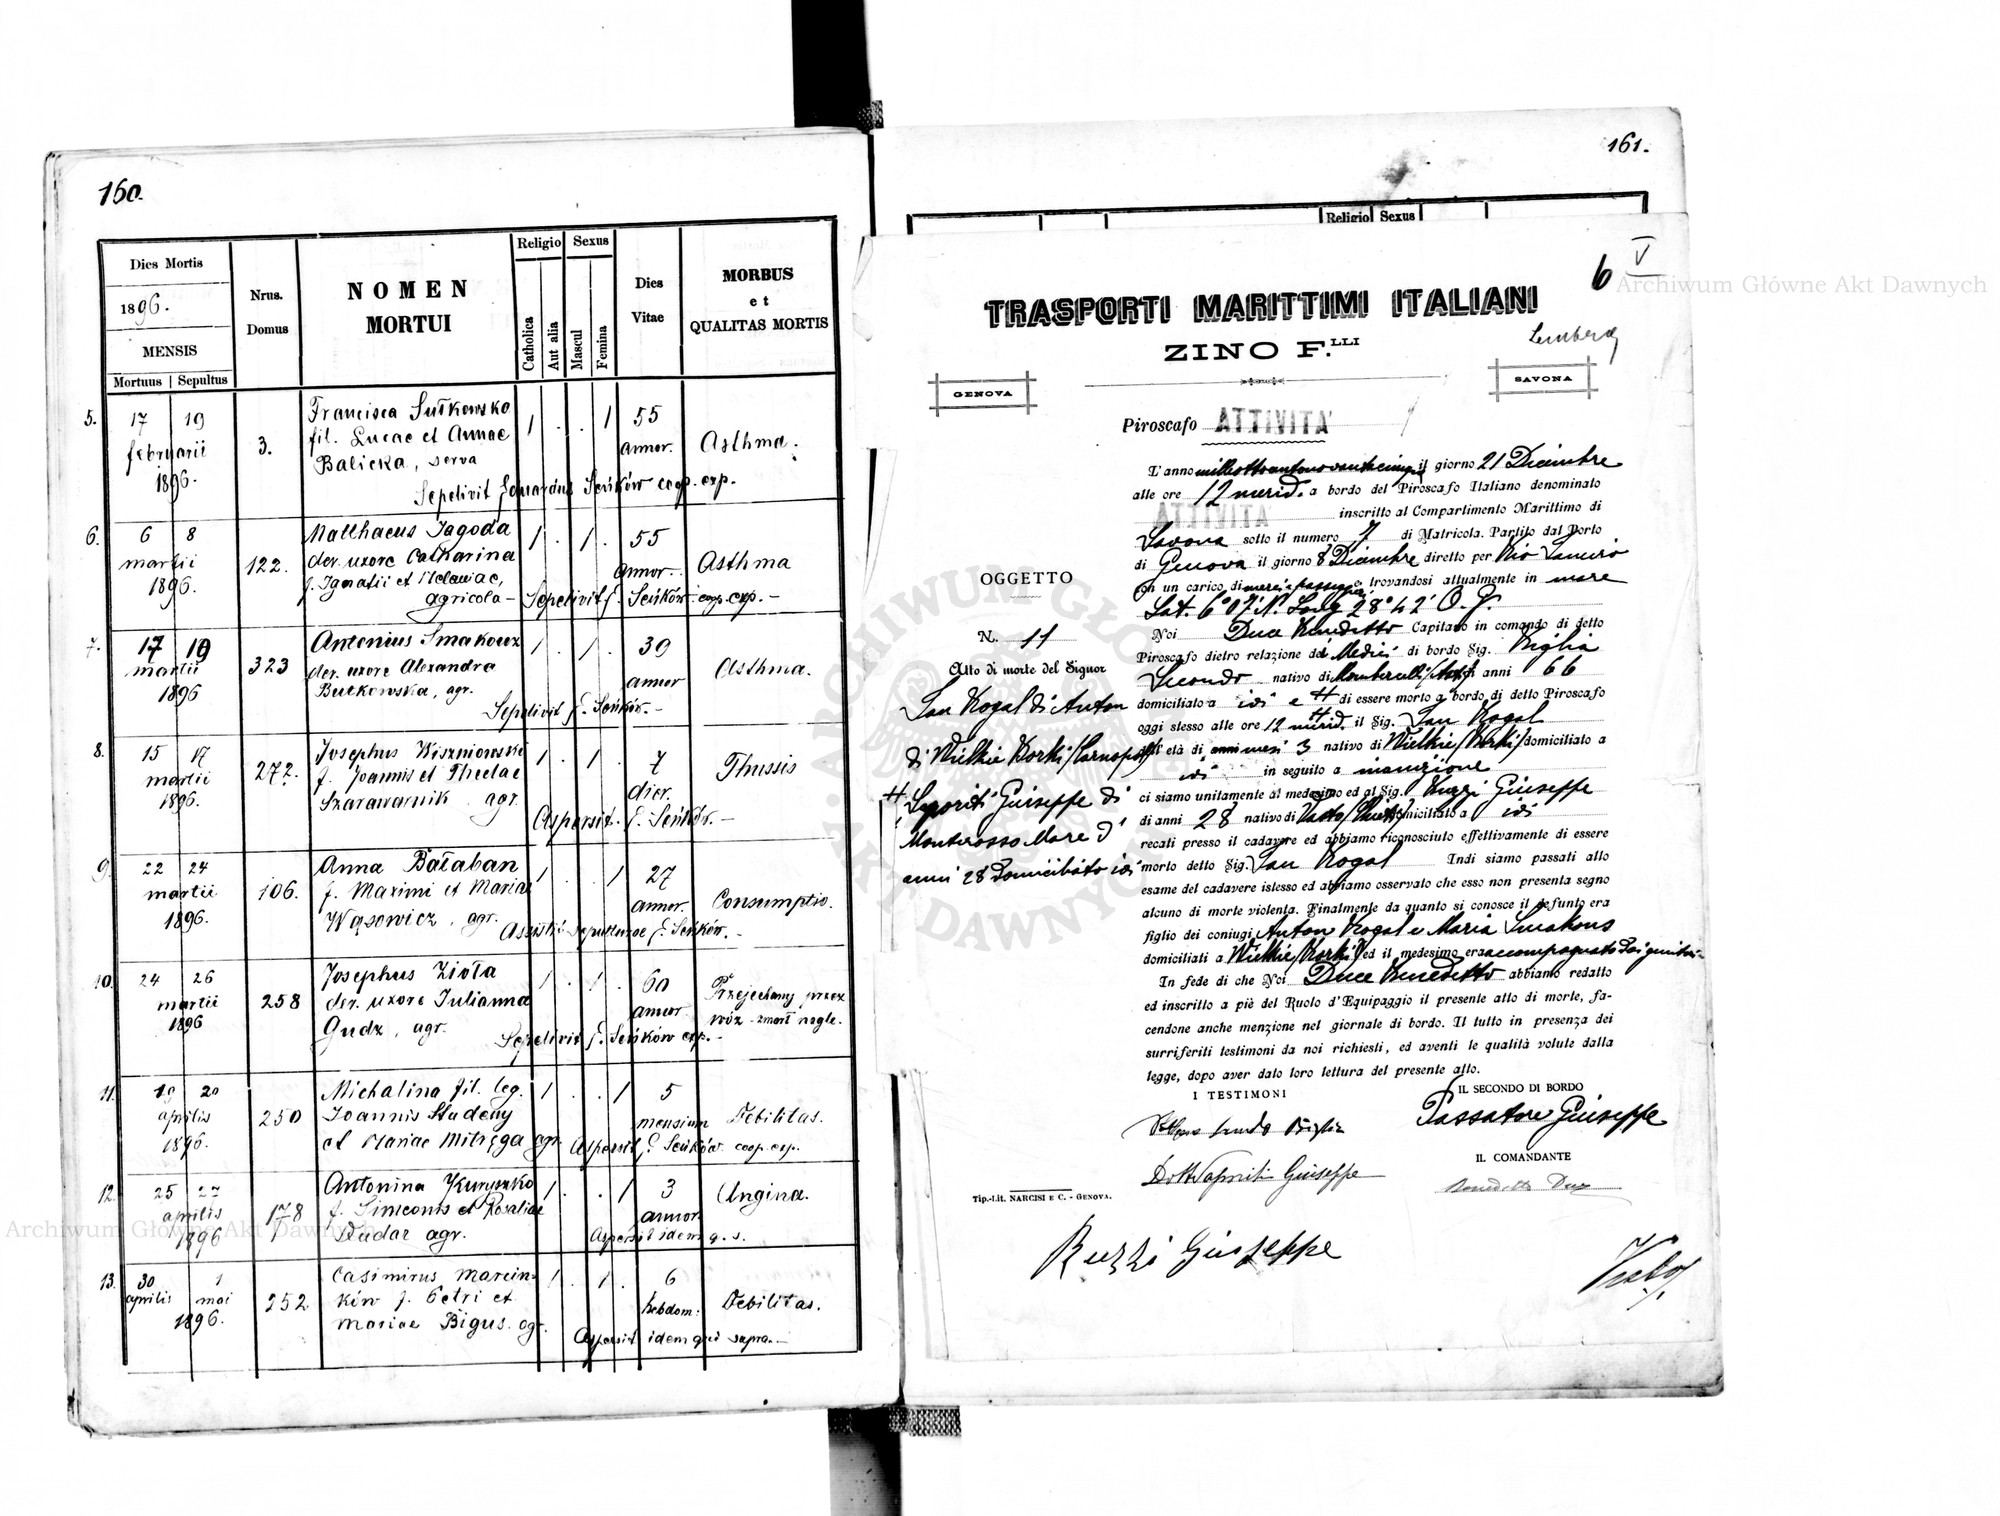 160.
Dies Mortis
1896.
MENSIS
Mortuus | Sepultus
Nrus. Domus
NOMEN MORTUI
Religio
Catholica
Aut alia
Sexus
Mascul
Femina
Dies Vitae
MORBUS et QUALITAS MORTIS
5. 17 19 3. Francisca Sułkowska 1 . . 1 55
februarii fil. Lucae et Annae annor. Asthma.
1896. Balicka, serva
Sepelivit Senków coop. exp.
6. 6 8 122. Matthaeus Jagoda 1 . 1 . 55
martii der. uxore Catharina annor. Asthma
1896. f. Ignatii et Melaniae,
agricola – Sepelivit f. Senków coop. exp. –
7. 17 19 323 Antonius Smakouz 1 . 1 . 39
martii der. uxore Alexandra annor Asthma.
1896 Butkowska, agr.
Sepelivit f. Senków. –
8. 15 17 272. Josephus Wiszniowski 1 . 1 . 7
martii f. Joannis et Theclae dier. Thussis
1896. Szarawarnik agr.
Aspersit. f. Senków. –
9. 22 24 106. Anna Bałaban 1 . . 1 27
martii f. Maximi et Mariae annor. Consumptio.
1896. Wąsowicz, agr.
Assistit sepulturae f. Senków. –
10. 24 26 258 Josephus Zioła 1 . 1 . 60 Przejechany przez
martii der. uxore Julianna annor. wóz – zmarł nagle.
1896 Gudz, agr.
Sepelivit f. Senków exp. –
11. 19 20 250 Michalina fil. leg. 1 . . 1 5
aprilis Joannis Studeny mensium Debilitas.
1896. et Mariae Mitręga agr.
Aspersit f. Senków coop. exp.
12. 25 27 178 Antonina Kuryszko 1 . . 1 3 Angina.
aprilis f. Simeonis et Rosaliae annor
1896 Dudar agr.
Aspersit idem q. s.
13. 30 1 252 Casimirus Marcin- 1 . 1 . 6
aprilis mai ków f. Petri et hebdom: Debilitas.
1896. Mariae Bigus. agr.
Aspersit idem qui supra. –
161.
Religio Sexus
6 V
TRASPORTI MARITTIMI ITALIANI
Lemberg
ZINO F.LLI
GENOVA
SAVONA
Piroscafo ATTIVITA'
L'anno millottocentonovantacinque il giorno 21 Dicembre
alle ore 12 merid. a bordo del Piroscafo Italiano denominato
ATTIVITA inscritto al Compartimento Marittimo di
Savona sotto il numero 7 di Matricola. Partito dal Porto
di Genova il giorno 8 Dicembre diretto per Rio Janeiro
con un carico di merci e passegg. e trovandosi attualmente in mare
Lat. 6°07' N. Long 28°42' O. G.
Noi Duce Benedetto Capitano in comando di detto
Piroscafo dietro relazione dei Medici di bordo Sig. Biglia
Secondo nativo di anni 66
domiciliato a ivi e # di essere morto a bordo di detto Piroscafo
oggi stesso alle ore 12 merid. il Sig. Jan Kogal
dell' età di anni mesi 3 nativo di Wielkie/Borki/ domiciliato a
ivi in seguito a inanizione
ci siamo unitamente al medesimo ed al Sig. Ruzzi Giuseppe
di anni 28 nativo di Vasto/Chieti/ domiciliato a ivi
recati presso il cadavere ed abbiamo riconosciuto effettivamente di essere
morto detto Sig. Jan Kogal Indi siamo passati allo
esame del cadavere istesso ed abbiamo osservato che esso non presenta segno
alcuno di morte violenta. Finalmente da quanto si conosce il defunto era
figlio dei coniugi Anton Kogal e Maria Smakous
domiciliati a Wielkie/Borki/ ed il medesimo era accompagnato dai genitori –
In fede di che Noi Duce Benedetto abbiamo redatto
ed inscritto a piè del Ruolo d'Equipaggio il presente atto di morte, fa-
cendone anche menzione nel giornale di bordo. Il tutto in presenza dei
surriferiti testimoni da noi richiesti, ed aventi le qualità volute dalla
legge, dopo aver dato loro lettura del presente atto.
OGGETTO
N. 11
Atto di morte del Signor
Jan Kogal di Anton
di Wielkie Borki/Tarnopol/
# Saporiti Giuseppe di
Monterosso Mare d'
anni 28 domiciliato ivi
I TESTIMONI
Secondo Biglia
Dott Saporiti Giuseppe
Ruzzi Giuseppe
IL SECONDO DI BORDO
Passatore Giuseppe
IL COMANDANTE
Benedetto Duce
Tip.-Lit. NARCISI E C. - GENOVA.
Archiwum Główne Akt Dawnych
Archiwum Główne Akt Dawnych
ARCHIWUM GŁÓWNE AKT DAWNYCH